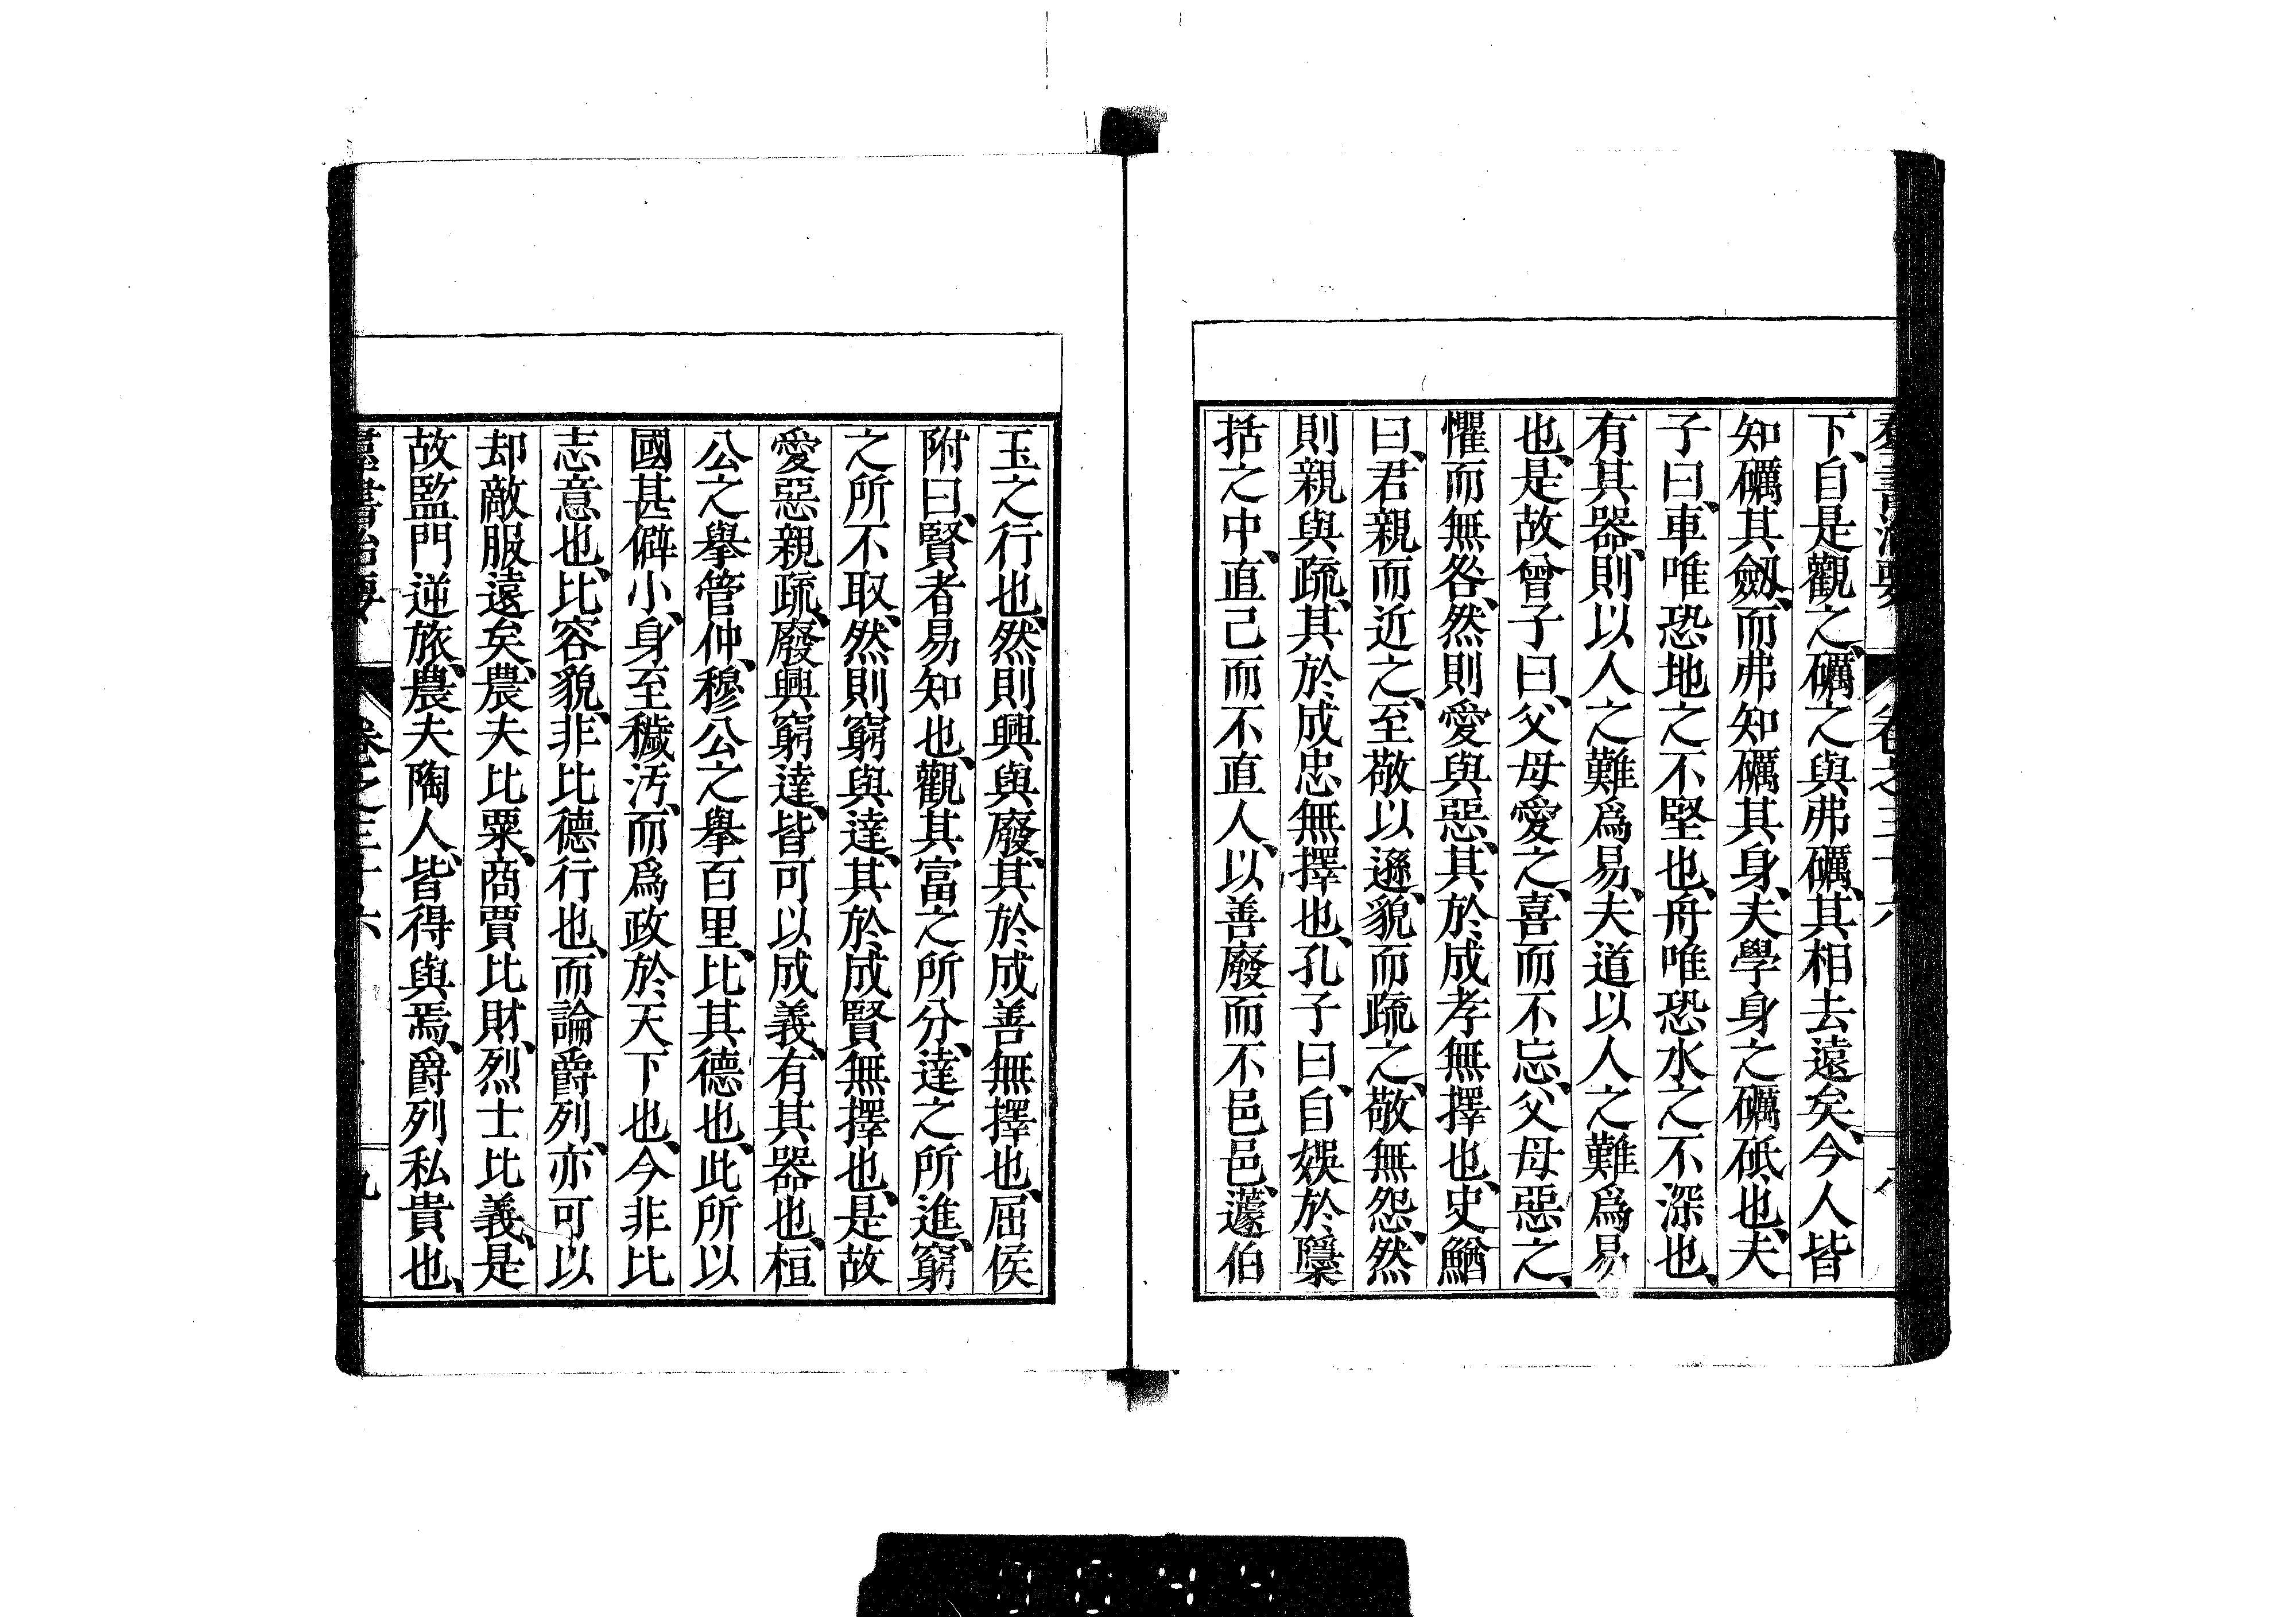 下、自是觀之、礪之與弗礪、其相去遠矣、今人皆
知礪其劔、而弗知礪其身、夫學身之礪砥也、夫
子曰、車唯恐地之不堅也、舟唯恐水之不深也、
有其器、則以人之難爲易、夫道以人之難爲易
也、是故曾子曰、父母愛之、喜而不忘、父母惡之、
懼而無咎、然則愛與惡、其於成孝無擇也、史鰌
曰、君親而近之、至敬以遜、貌而疏之、敬無怨、然
則親與疏、其於成忠無擇也、孔子曰、自娛於檃
括之中、直己而不直人、以善廢而不邑邑、蘧伯
玉之行也、然則興與廢、其於成善無擇也、屈侯
附曰、賢者易知也、觀其富之所分、達之所進、窮
之所不取、然則窮與達、其於成賢無擇也、是故
愛惡親疏、廢興窮達、皆可以成義、有其器也、桓
公之擧管仲、穆公之擧百里、比其德也、此所以
國甚僻小、身至穢汚、而爲政於天下也、今非比
志意也、比容貌、非比德行也、而論爵列、亦可以
却敵服遠矣、農夫比粟、商賈比財、烈士比義、是
故監門逆旅、農夫陶人、皆得與焉、爵列私貴也、
卷之三十六